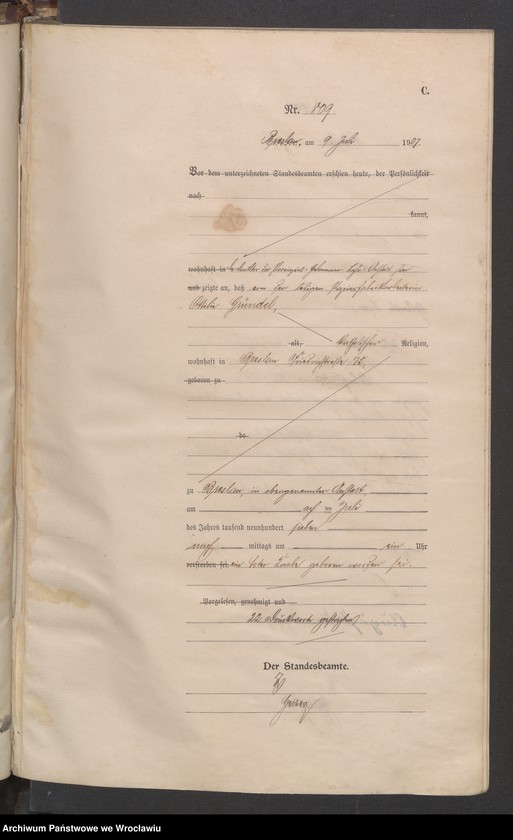 C.
Nr. 809
Breslau, am 9. Juli 1907.
Vor dem unterzeichneten Standesbeamten erschien heute, der Persönlichkeit
nach
kannt,
wohnhaft in Der der Provinzial-Hebammen Lehr-Anstalt hier
und zeigte an, daß von der ledigen
Ottilie Gründel,
alt, katholischer Religion,
wohnhaft in Breslau 75,
geboren zu
da
zu Breslau, in obengenannter Anstalt,
am acht en Juli
des Jahres tausend neunhundert sieben
nach mittags um ein Uhr
verstorben sei. ein toter Knabe geboren worden sei.
Vorgelesen, genehmigt und
22 Druckworte gestrichen
Der Standesbeamte.
Archiwum Państwowe we Wrocławiu